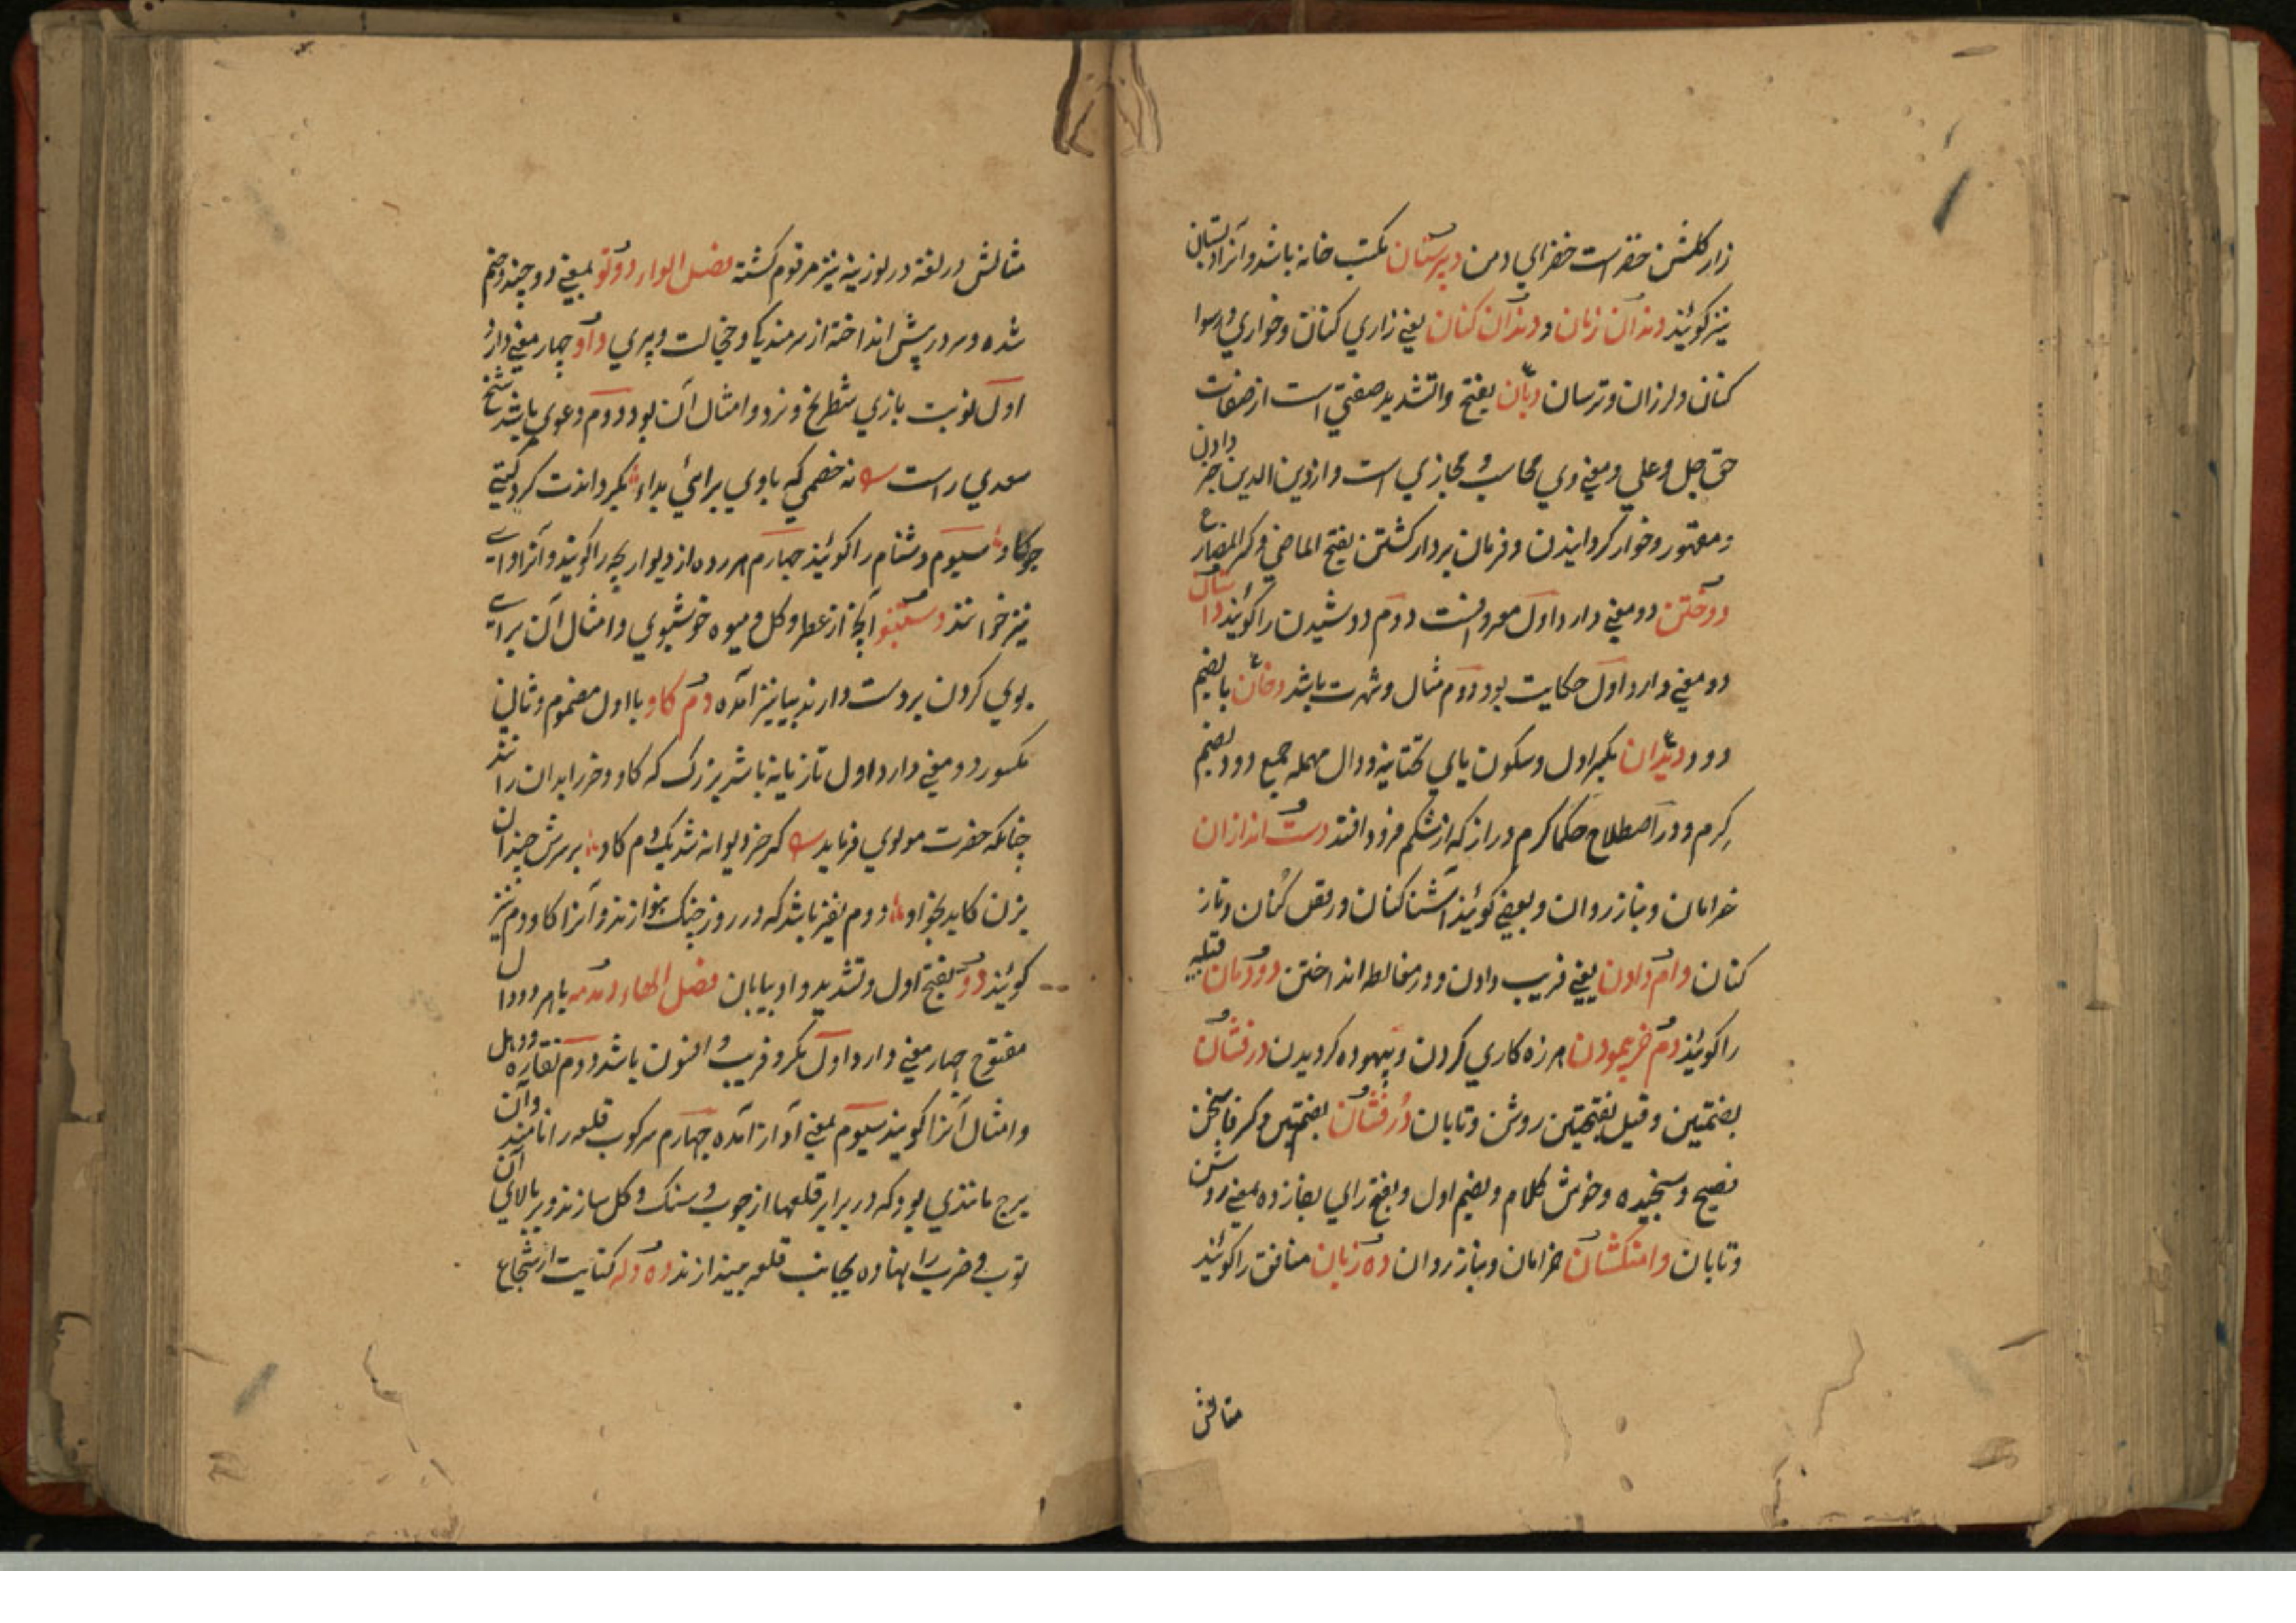 زار گلشن خضراست خضرای دمن دبیرستان مکتب خانه باشد و آنرا دبستان
نیز گویند دندان زنان و دندان کنان یعنی زاری کنان و خواری و رسوا
کنان و لرزان و ترسان دیّان بفتح و التشدید صفتی است از صفات
حق جل و علی و معنی وی محاسب و مجازی است و از دین الدین جزا دادن
و مقهور و خوار گردانیدن و فرمان بردار گشتن بفتح الماضی و کسر المضارع
دوختن دو معنی دارد اول معروفست دوم دوشیدن را گویند داستان
دو معنی دارد اول حکایت بود دوم مثال و شهرت باشد دخان بالضم
دود دیدان بکسر اول و سکون یای تحتانیه و دال مهمله جمع دود بضم
کرم و در اصطلاح حکما کرم دراز که از شکم فرود افتد دست اندازان
خرامان و بناز روان و بعضی گویند آشنا کنان و رقص کنان و ناز
کنان دام دادن یعنی فریب دادن و در مغالطه انداختن دودمان قبیله
را گویند دم خر پیمودن هرزه کاری کردن و بیهوده گردیدن درفشان
بضمتین و قیل بفتحتین روشن و تابان درفشان بضمتین و کسر فا سخن
فصیح و سنجیده و خوش کلام و بضم اول و بفتح رای بفا زده بمعنی روشن
و تابان دامنکشان خرامان و بناز روان ده زبان منافق را گویند
مثالش
مثالش در لغة در لوزینه نیز مرقوم گشته فصل الواو دوتو بمعنی دو چند و خم
شده و سر در پیش انداخته از شرمندگی و خجالت و پیری داو چهار معنی دارد
اول نوبت بازی شطرنج و نرد و امثال آن بود دوم دعوی باشد شیخ
سعدی راست نه خصمی که با وی برائی بداو بگرداندت گرد گیتی
چو گاو سیوم دشنام را گویند چهارم هر رده از دیوار بچه را گویند و آنرا وای
نیز خوانند دستنبو آنچه از عطر و گل و میوه خوشبوی و امثال آن برای
بوی کردن بر دست دارند بیا نیز آمده دم گاو با اول مضموم و ثانی
مکسور دو معنی دارد اول تازیانه باشد بزرگ که گاو و خر را بدان رانند
چنانکه حضرت مولوی فرماید گر خر دیوانه شد یک دم گاو بر سرش چندان
بزن کاید بخو او دوم نفیر باشد که در روز جنگ بنوازند و آنرا گاو دم نیز
گویند دو بفتح اول و تشدید واو بیابان فصل الهاء دمدمه با هر دو دال
مفتوح چهار معنی دارد اول مکر و فریب و افسون باشد دوم نقاره و دهل
و امثال آنرا گویند سیوم بمعنی آواز آمده چهارم سرکوب قلعه را نامند و آن
برج مانندی بود که در برابر قلعها از چوب و سنگ و گل سازند و بر بالای آن
توب و ضرب را نهاده بجانب قلعه میندازند ده دله کنایت از شجاع